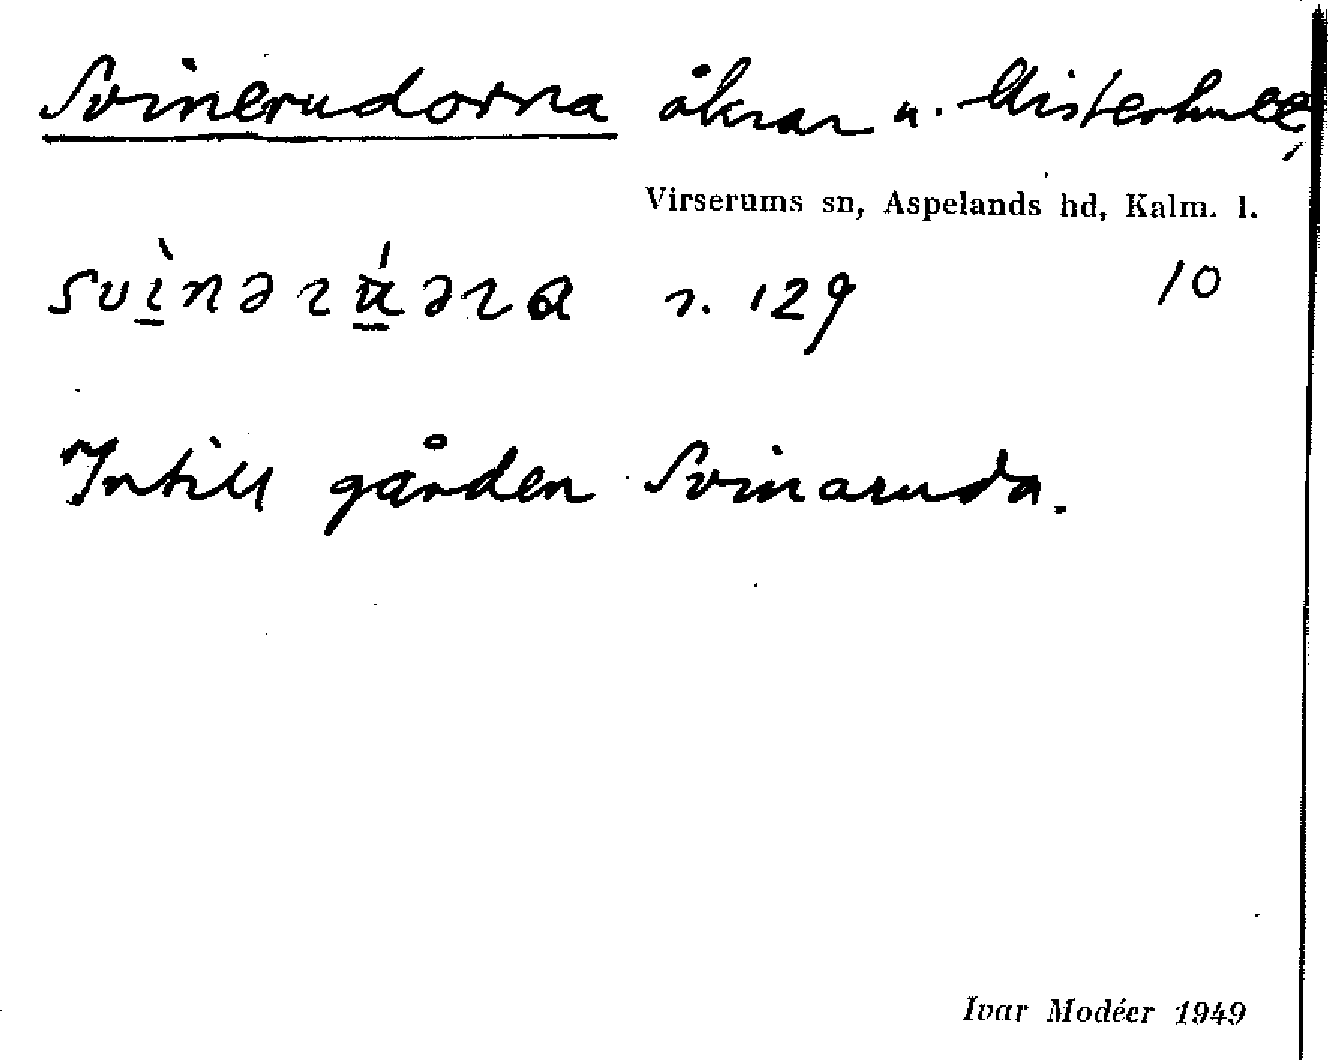 Svinerudorna åkrar u. Misterhult,
Virserums sn, Aspelands hd, Kalm. l.
svìnərúəra s. 129 10
Intill gården Svinaruda.
Ivar Modéer 1949